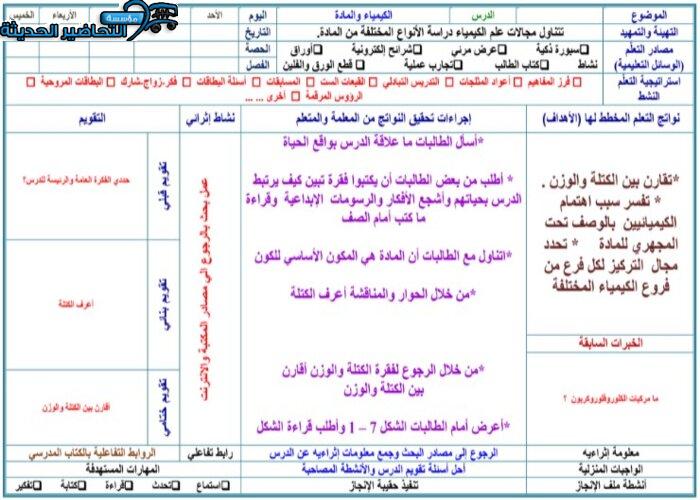 مؤسسة
التحاضير الحديثة
الموضوع
الدرس
الكيمياء والمادة
اليوم
الأحد
الأربعاء
الخميس
التهيئة والتمهيد
تتناول مجالات علم الكيمياء دراسة الأنواع المختلفة من المادة.
التاريخ
مصادر التعلم
(الوسائل التعليمية)
سبورة ذكية
عرض مرئي
شرائح إلكترونية
أوراق
الحصة
نشاط
كتاب الطالب
تجارب عملية
قطع الورق والفلين
الفصل
استراتيجية التعلم
النشط
فرز المفاهيم
أعواد المثلجات
التدريس التبادلي
القبعات الست
المسابقات
أسئلة البطاقات
فكر-زواج-شارك
البطاقات المروحية
الرؤوس المرقمة
أخرى ... ...
نواتج التعلم المخطط لها (الأهداف)
إجراءات تحقيق النواتج من المعلمة والمتعلم
نشاط إثرائي
التقويم
*تقارن بين الكتلة والوزن .
* تفسر سبب اهتمام
الكيميائيين بالوصف تحت
المجهري للمادة * تحدد
مجال التركيز لكل فرع من
فروع الكيمياء المختلفة
الخبرات السابقة
ما مركبات الكلوروفلوروكربون ؟
*أسأل الطالبات ما علاقة الدرس بواقع الحياة
* أطلب من بعض الطالبات أن يكتبوا فقرة تبين كيف يرتبط
الدرس بحياتهم وأشجع الأفكار والرسومات الإبداعية وقراءة
ما كتب أمام الصف
*اتناول مع الطالبات أن المادة هي المكون الأساسي للكون
*من خلال الحوار والمناقشة أعرف الكتلة
*من خلال الرجوع لفقرة الكتلة والوزن أقارن
بين الكتلة والوزن
*أعرض أمام الطالبات الشكل 7 – 1 وأطلب قراءة الشكل
عمل بحث بالرجوع الي مصادر المكتبة والانترنت
تقويم قبلي
حددي الفكرة العامة والرئيسة للدرس؟
تقويم بنائي
أعرف الكتلة
تقويم ختامي
أقارن بين الكتلة والوزن
معلومة إثراءيه
الرجوع إلى مصادر البحث وجمع معلومات إثراءيه عن الدرس
رابط تفاعلي
الروابط التفاعلية بالكتاب المدرسي
الواجبات المنزلية
أحل أسئلة تقويم الدرس والأنشطة المصاحبة
المهارات المستهدفة
أنشطة ملف الإنجاز
تنفيذ حقيبة الإنجاز
استماع
تحدث
قراءة
كتابة
تفكير